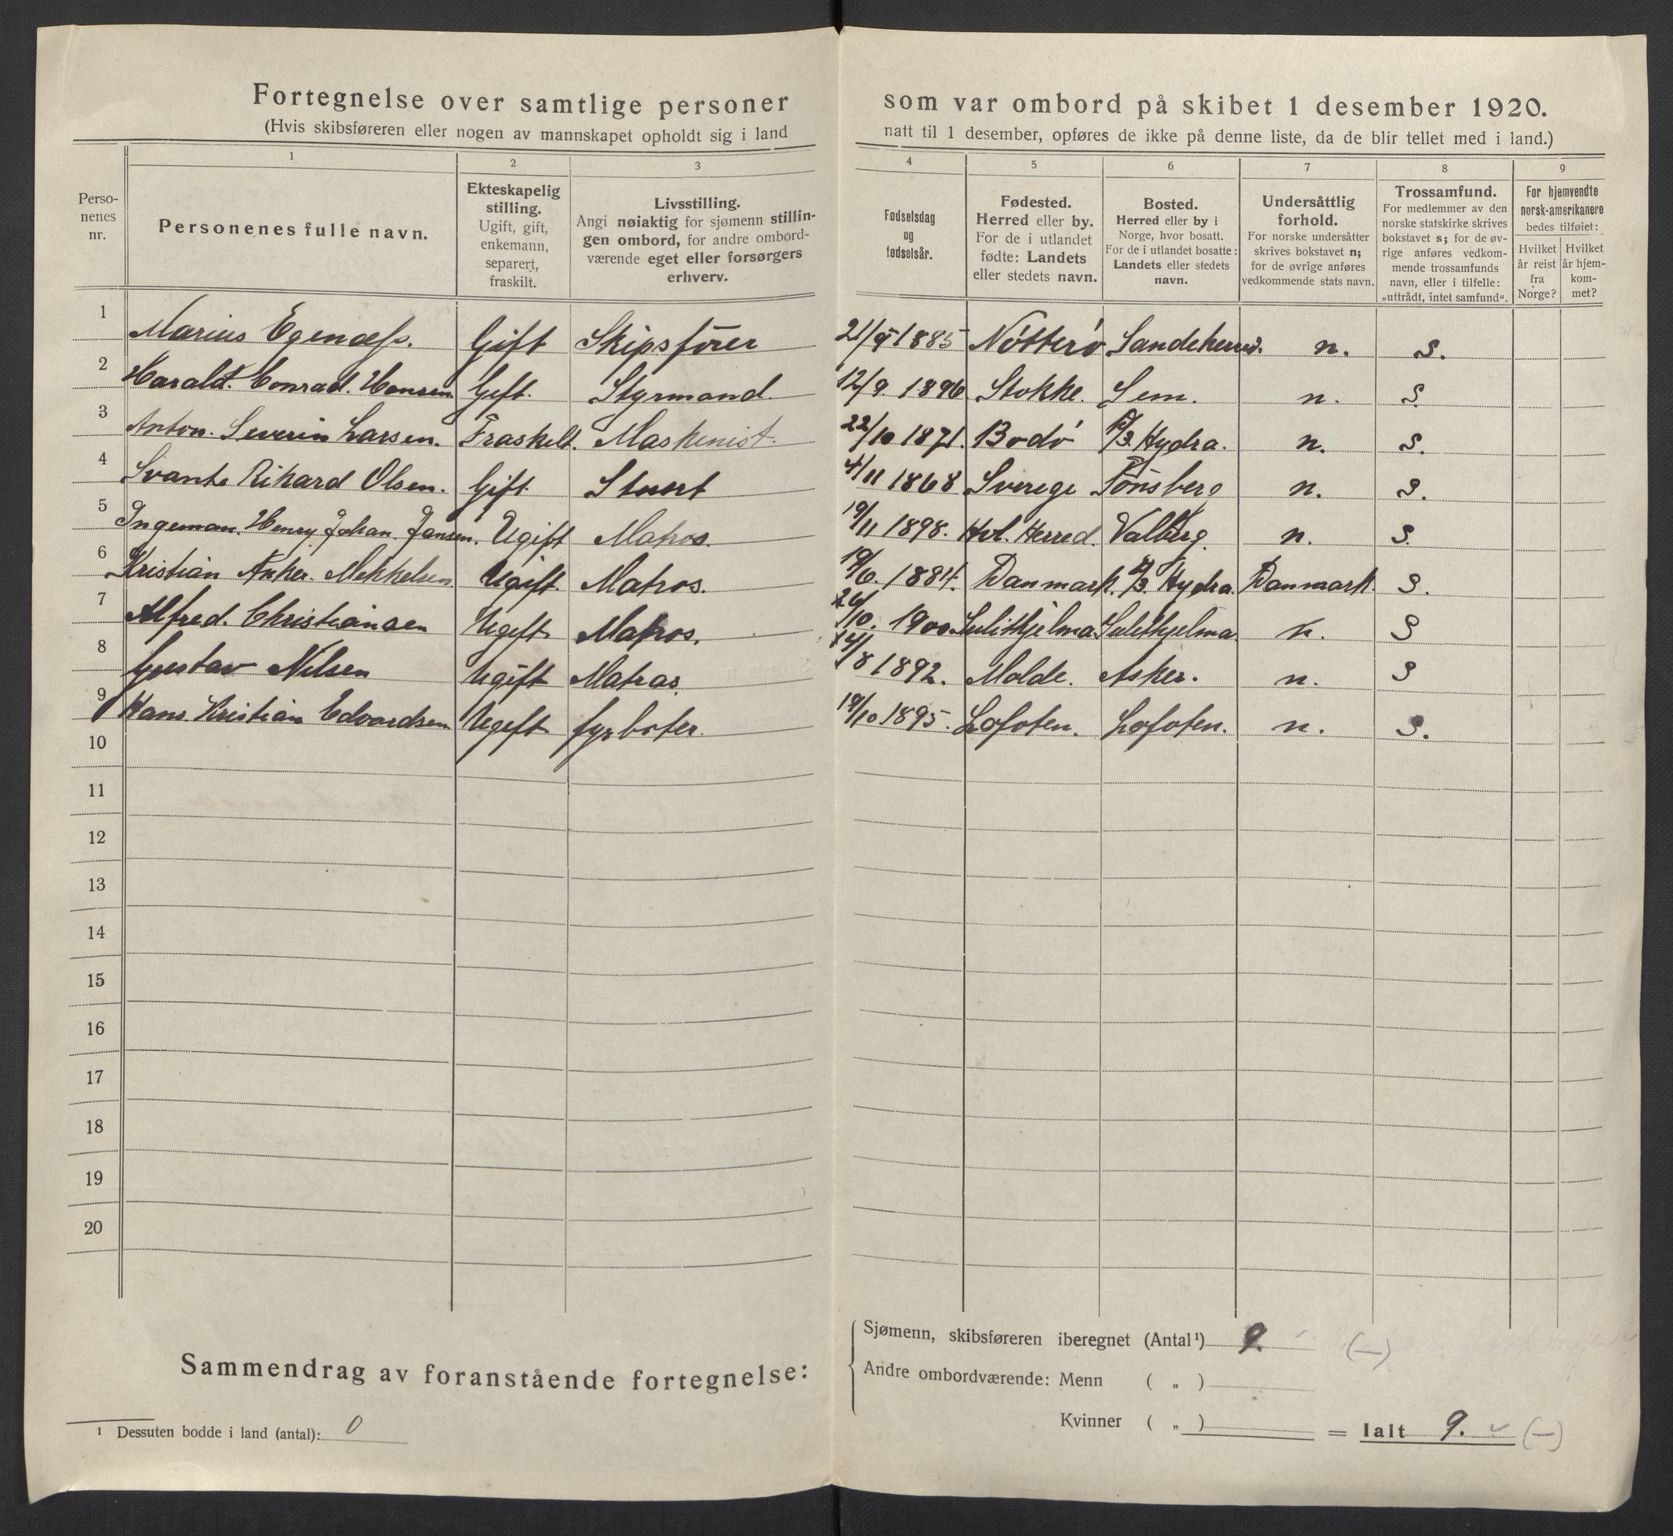 Fortegnelse over samtlige personer som var ombord på skibet 1 desember 1920.
(Hvis skibsføreren eller nogen av mannskapet opholdt sig i land natt til 1 desember, opføres de ikke på denne liste, da de blir tellet med i land.)
Perso-
nenes
nr.
1
Personenes fulle navn.
2
Ekteskapelig
stilling.
Ugift, gift,
enkemann,
separert,
fraskilt.
3
Livsstilling.
Angi nøiaktig for sjømenn stillin-
gen ombord, for andre ombord-
værende eget eller forsørgers
erhverv.
4
Fødselsdag
og
fødselsår.
5
Fødested.
Herred eller by.
For de i utlandet
fødte: Landets
eller stedets navn.
6
Bosted.
Herred eller by i
Norge, hvor bosatt.
For de i utlandet bosatte:
Landets eller stedets
navn.
7
Undersåttlig
forhold.
For norske undersåtter
skrives bokstavet n;
for de øvrige anføres
vedkommende stats navn.
8
Trossamfund.
For medlemmer av den
norske statskirke skrives
bokstavet s; for de øv-
rige anføres vedkom-
mende trossamfunds
navn, eller i tilfelle:
„uttrådt, intet samfund“.
9
For hjemvendte
norsk-amerikanere
bedes tilføiet:
Hvilket
år reist
fra
Norge?
Hvilket
år hjem-
kom-
met?
1 Marius Egenæss. Gift Skipsförer 1885 Nötterö Sandeherred. n. S.
2 Harald. Conrad. Hansen Gift. Styrmand. 12/9. 1896 Stokke. Sem. n. S.
3 Anton. Severin Larsen. Fraskilt. Maskinist. 22/10 1871. Bodö D/S. Hydra. n. S.
4 Svante Rikard Olsen. Gift. Stuert 4/11 1868 Sverige Tönsberg n. S.
5 Ingeman. Henry Johan. Jansen. Ugift Matros. 19/11 1898. Hvl. Herred. Valberg. n. S.
6 Kristian Anker. Mekkelsen. Ugift. Matros. 19/6. 1884. Danmark. D/S Hydra. Danmark. S.
7 Alfred. Christiansen Ugift Matros. 26/10. 1900 Sulithjelma Sulithjelma. n. S
8 Gustav Nilsen Ugift Matros. 14/8 1892. Molde. Asker. n. S
9 Hans Kristian Edvardsen Ugift fyrböter. 18/10 1895. Lofoten. Lofoten. n. S.
10
11
12
13
14
15
16
17
18
19
20
Sammendrag av foranstående fortegnelse:
Sjømenn, skibsføreren iberegnet (Antal¹) 9. (—)
Andre ombordværende: Menn ( „ )
Kvinner ( „ ) = Ialt 9. (—)
¹ Dessuten bodde i land (antal): 0